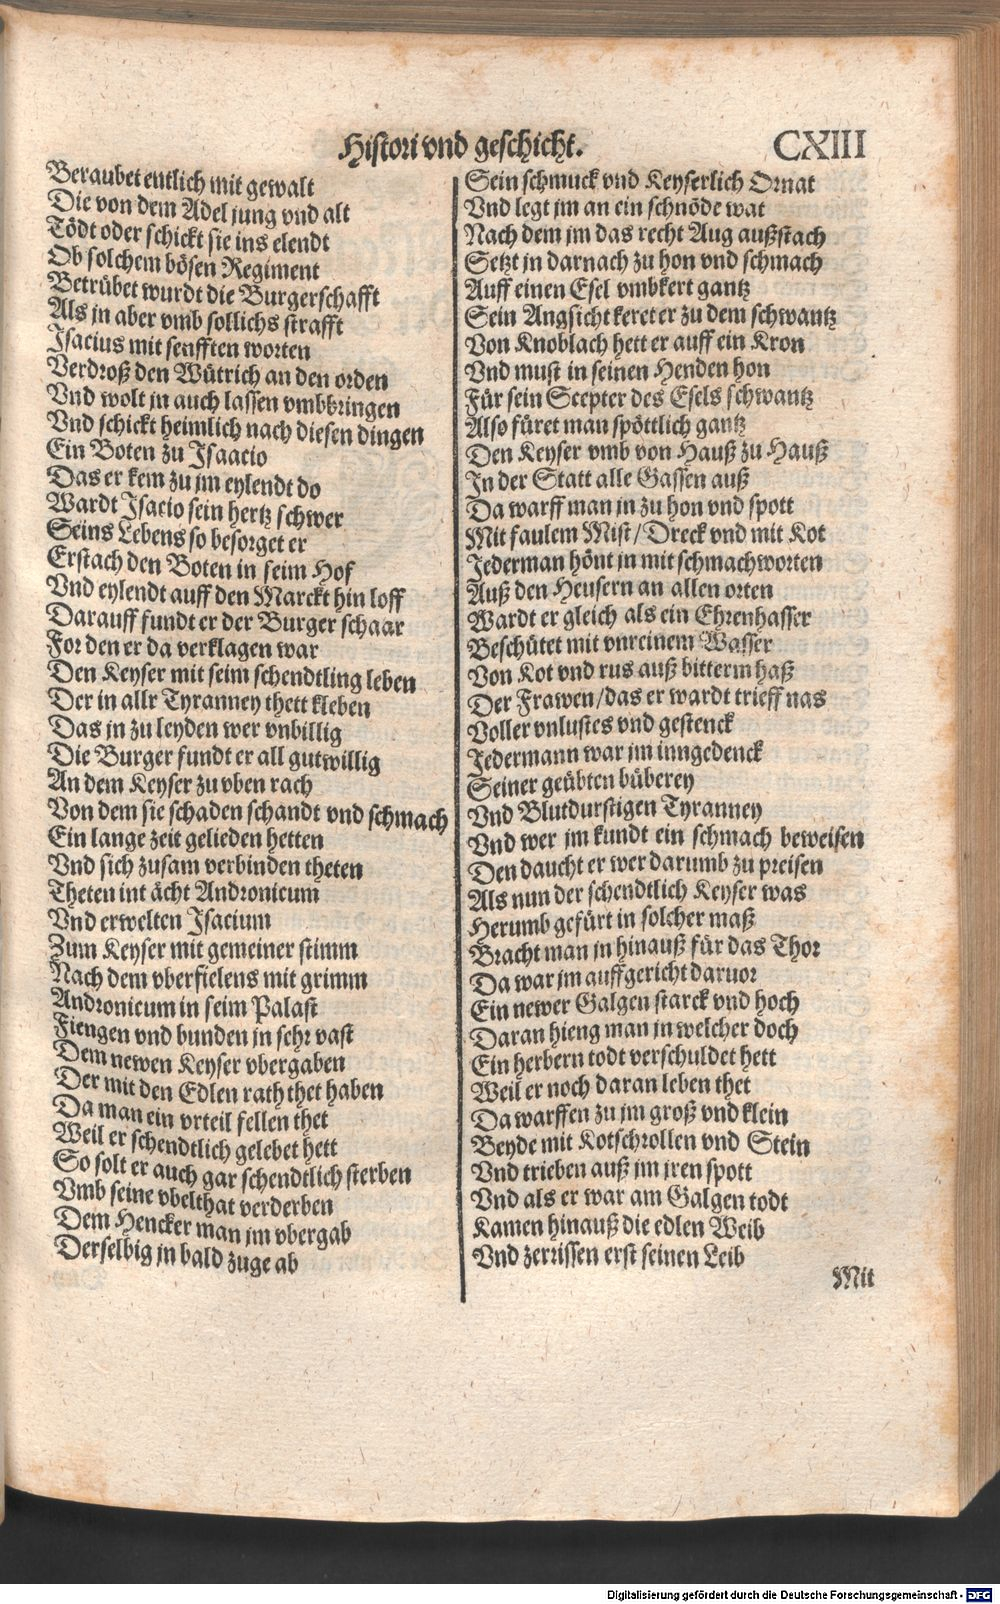 Histori vnd geschicht. CXIII
Beraubet entlich mit gewalt
Die von dem Adel jung vnd alt
Tödt oder schickt sie ins elendt
Ob solchem bösen Regiment
Betrübet wurdt die Burgerschafft
Als jn aber vmb sollichs strafft
Isacius mit senfften worten
Verdroß den Wütrich an den orden
Vnd wolt jn auch lassen vmbbringen
Vnd schickt heimlich nach diesen dingen
Ein Boten zu Isaacio
Das er kem zu jm eylendt do
Wardt Isacio sein hertz schwer
Seins Lebens so besorget er
Erstach den Boten in seim Hof
Vnd eylendt auff den Marckt hin loff
Darauff fundt er der Burger schaar
For den er da verklagen war
Den Keyser mit seim schendtling leben
Der in allr Tyranney thett kleben
Das jn zu leyden wer vnbillig
Die Burger fundt er all gutwillig
An dem Keyser zu vben rach
Von dem sie schaden schandt vnd schmach
Ein lange zeit gelieden hetten
Vnd sich zusam verbinden theten
Theten int ächt Andronicum
Vnd erwelten Isacium
Zum Keyser mit gemeiner stimm
Nach dem vberfielens mit grimm
Andronicum in seim Palast
Fiengen vnd bunden jn sehr vast
Dem newen Keyser vbergaben
Der mit den Edlen rath thet haben
Da man ein vrteil fellen thet
Weil er schendtlich gelebet hett
So solt er auch gar schendtlich sterben
Vmb seine vbelthat verderben
Dem Hencker man jm vbergab
Derselbig jn bald zuge ab
Sein schmuck vnd Keyserlich Ornat
Vnd legt jm an ein schnöde wat
Nach dem jm das recht Aug außstach
Setzt jn darnach zu hon vnd schmach
Auff einen Esel vmbkert gantz
Sein Angsicht keret er zu dem schwantz
Von Knoblach hett er auff ein Kron
Vnd must in seinen Henden hon
Für sein Scepter des Esels schwantz
Also füret man spöttlich gantz
Den Keyser vmb von Hauß zu Hauß
In der Statt alle Gassen auß
Da warff man jn zu hon vnd spott
Mit faulem Mist / Dreck vnd mit Kot
Jederman hönt jn mit schmachworten
Auß den Heusern an allen orten
Wardt er gleich als ein Ehrenhasser
Beschütet mit vnreinem Wasser
Von Kot vnd rus auß bitterm haß
Der Frawen / das er wardt trieff nas
Voller vnlustes vnd gestenck
Jedermann war jm inngedenck
Seiner geübten büberey
Vnd Blutdurstigen Tyranney
Vnd wer jm kundt ein schmach beweisen
Den daucht er wer darumb zu preisen
Als nun der schendtlich Keyser was
Herumb gefürt in solcher maß
Bracht man jn hinauß für das Thor
Da war jm auffgericht daruor
Ein newer Galgen starck vnd hoch
Daran hieng man jn welcher doch
Ein herbern todt verschuldet hett
Weil er noch daran leben thet
Da warffen zu jm groß vnd klein
Beyde mit Kotschrollen vnd Stein
Vnd trieben auß jm jren spott
Vnd als er war am Galgen todt
Kamen hinauß die edlen Weib
Vnd zerrissen erst seinen Leib
Mit
Digitalisierung gefördert durch die Deutsche Forschungsgemeinschaft - DFG